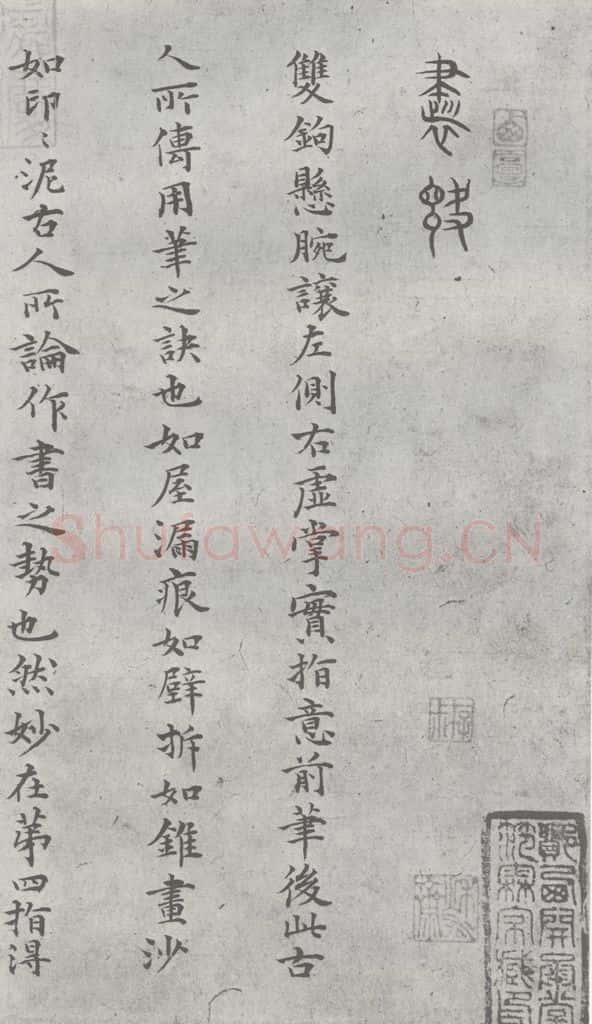 書訣
雙鉤懸腕讓左側右虛掌實指意前筆後此古
人所傳用筆之訣也如屋漏痕如壁拆如錐畫沙
如印〻泥古人所論作書之勢也然妙在第四指得
Shufawang.CN